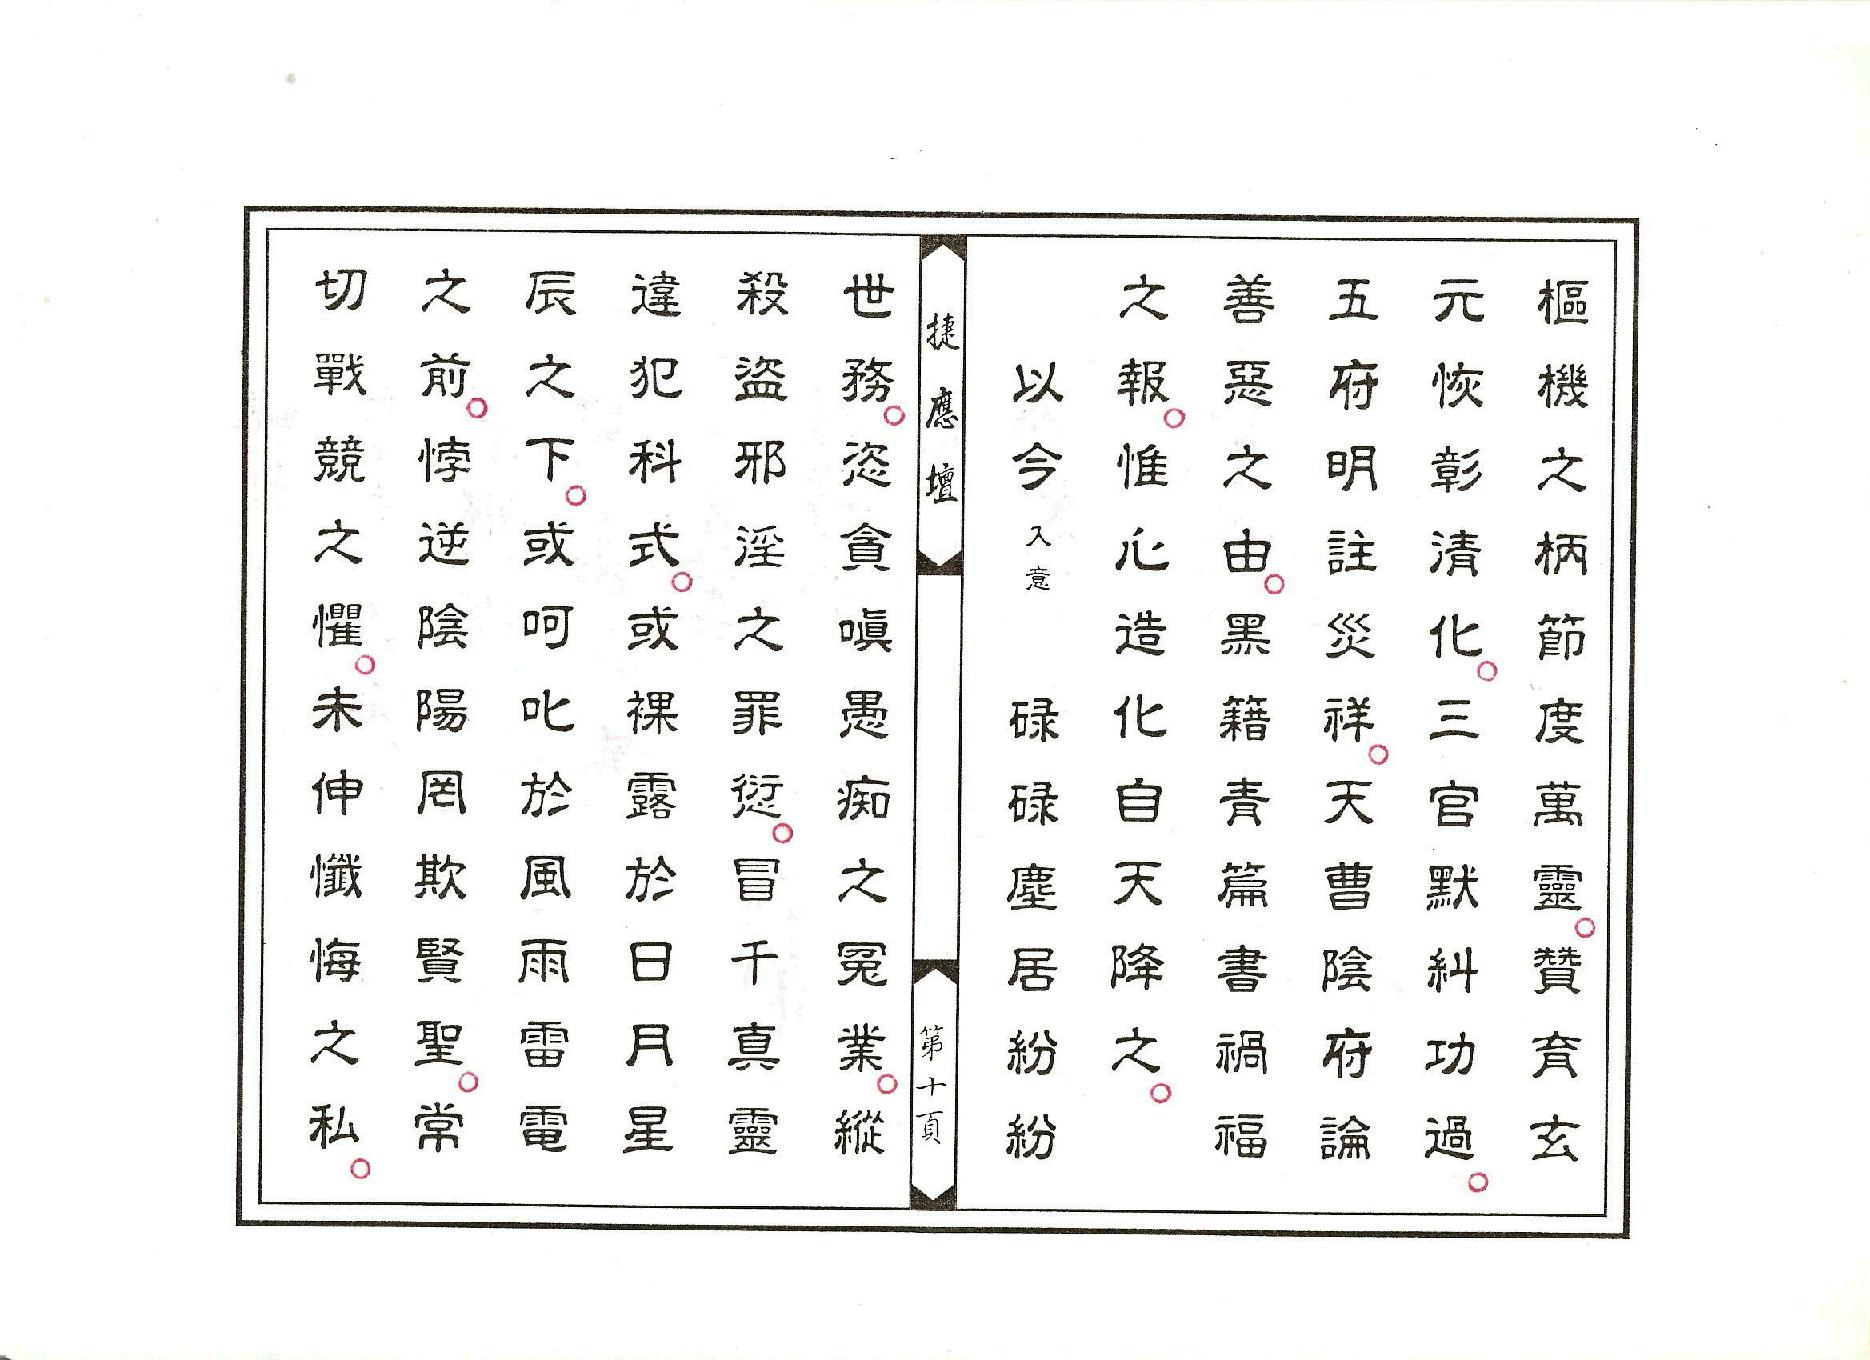 樞機之柄節度萬靈○贊育玄
元恢彰清化○三官默糾功過○
五府明註災祥○天曹陰府論
善惡之由○黑籍青篇書禍福
之報○惟心造化自天降之○
以今 入意 碌碌塵居紛紛
捷應壇
第十頁
世務○恣貪嗔愚痴之冤業○縱
殺盜邪淫之罪愆○冒千真靈
違犯科式○或裸露於日月星
辰之下○或呵叱於風雨雷電
之前○悖逆陰陽罔欺賢聖○常
切戰競之懼○未伸懺悔之私○